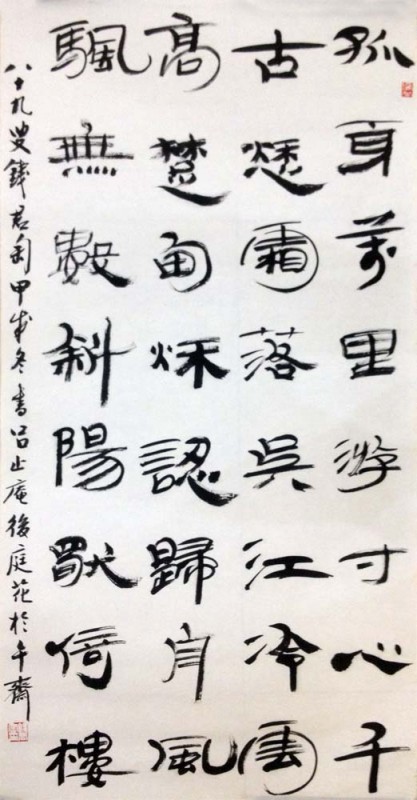 孤身萬里游寸心千
古愁霜落吳江冷雲
高楚甸秋認歸舟風
颿無數斜陽獨倚樓
八十九叟錢君匋甲戌冬書呂止庵後庭花於午齋